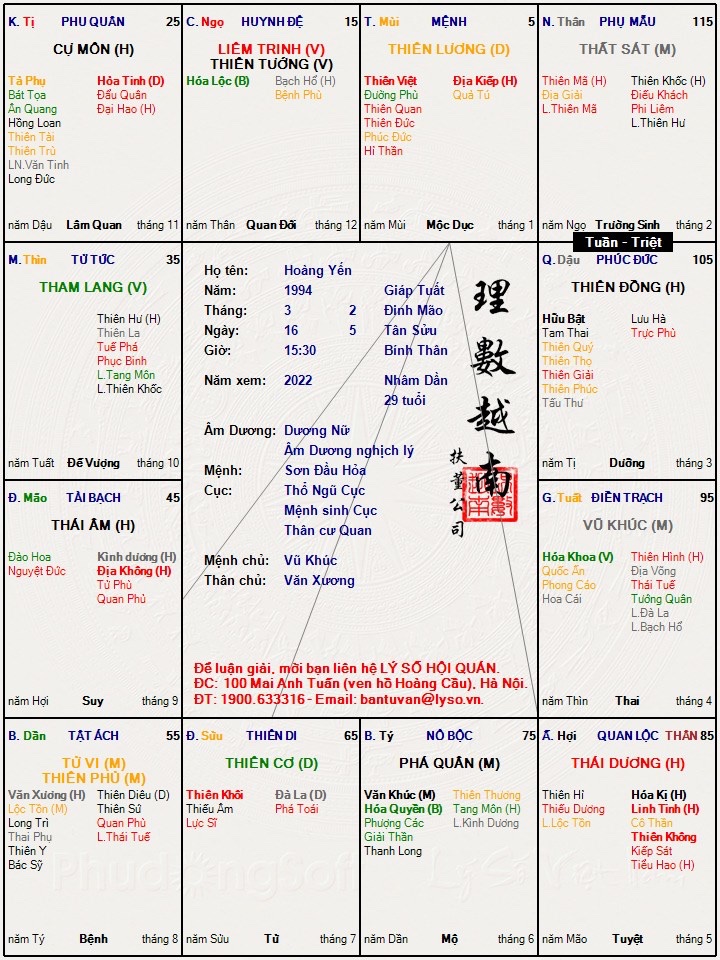 K. Tị PHU QUÂN 25
CỰ MÔN (H)
Tả Phụ Hỏa Tinh (D)
Bát Tọa Đẩu Quân
Ân Quang Đại Hao (H)
Hồng Loan
Thiên Tài
Thiên Trù
LN.Văn Tinh
Long Đức
năm Dậu Lâm Quan tháng 11
C. Ngọ HUYNH ĐỆ 15
LIÊM TRINH (V)
THIÊN TƯỚNG (V)
Hóa Lộc (B) Bạch Hổ (H)
Bệnh Phù
năm Thân Quan Đới tháng 12
T. Mùi MỆNH 5
THIÊN LƯƠNG (D)
Thiên Việt Địa Kiếp (H)
Đường Phù Quả Tú
Thiên Quan
Thiên Đức
Phúc Đức
Hỉ Thần
năm Mùi Mộc Dục tháng 1
N. Thân PHỤ MẪU 115
THẤT SÁT (M)
Thiên Mã (H) Thiên Khốc (H)
Địa Giải Điếu Khách
L.Thiên Mã Phi Liêm
L.Thiên Hư
năm Ngọ Trường Sinh tháng 2
Tuần - Triệt
M. Thìn TỬ TỨC 35
THAM LANG (V)
Thiên Hư (H)
Thiên La
Tuế Phá
Phục Binh
L.Tang Môn
L.Thiên Khốc
năm Tuất Đế Vượng tháng 10
Họ tên: Hoàng Yến
Năm: 1994 Giáp Tuất
Tháng: 3 2 Đinh Mão
Ngày: 16 5 Tân Sửu
Giờ: 15:30 Bính Thân
Năm xem: 2022 Nhâm Dần
29 tuổi
Âm Dương: Dương Nữ
Âm Dương nghịch lý
Mệnh: Sơn Đầu Hỏa
Cục: Thổ Ngũ Cục
Mệnh sinh Cục
Thân cư Quan
Mệnh chủ: Vũ Khúc
Thân chủ: Văn Xương
理數越南
扶董公司
Để luận giải, mời bạn liên hệ LÝ SỐ HỘI QUÁN.
ĐC: 100 Mai Anh Tuấn (ven hồ Hoàng Cầu), Hà Nội.
ĐT: 1900.633316 - Email: bantuvan@lyso.vn.
Q. Dậu PHÚC ĐỨC 105
THIÊN ĐỒNG (H)
Hữu Bật Lưu Hà
Tam Thai Trực Phù
Thiên Quý
Thiên Thọ
Thiên Giải
Thiên Phúc
Tấu Thư
năm Tị Dưỡng tháng 3
Đ. Mão TÀI BẠCH 45
THÁI ÂM (H)
Đào Hoa Kình dương (H)
Nguyệt Đức Địa Không (H)
Tử Phù
Quan Phủ
năm Hợi Suy tháng 9
G. Tuất ĐIỀN TRẠCH 95
VŨ KHÚC (M)
Hóa Khoa (V) Thiên Hình (H)
Quốc Ấn Địa Võng
Phong Cáo Thái Tuế
Hoa Cái Tướng Quân
L.Đà La
L.Bạch Hổ
năm Thìn Thai tháng 4
B. Dần TẬT ÁCH 55
TỬ VI (M)
THIÊN PHỦ (M)
Văn Xương (H) Thiên Diêu (D)
Lộc Tồn (M) Thiên Sứ
Long Trì Quan Phù
Thai Phụ L.Thái Tuế
Thiên Y
Bác Sỹ
năm Tý Bệnh tháng 8
Đ. Sửu THIÊN DI 65
THIÊN CƠ (D)
Thiên Khôi Đà La (D)
Thiếu Âm Phá Toái
Lực Sĩ
năm Sửu Tử tháng 7
B. Tý NÔ BỘC 75
PHÁ QUÂN (M)
Văn Khúc (M) Thiên Thương
Hóa Quyền (B) Tang Môn (H)
Phượng Các L.Kình Dương
Giải Thần
Thanh Long
năm Dần Mộ tháng 6
Ấ. Hợi QUAN LỘC THÂN 85
THÁI DƯƠNG (H)
Thiên Hỉ Hóa Kị (H)
Thiếu Dương Linh Tinh (H)
L.Lộc Tồn Cô Thần
Thiên Không
Kiếp Sát
Tiểu Hao (H)
năm Mão Tuyệt tháng 5